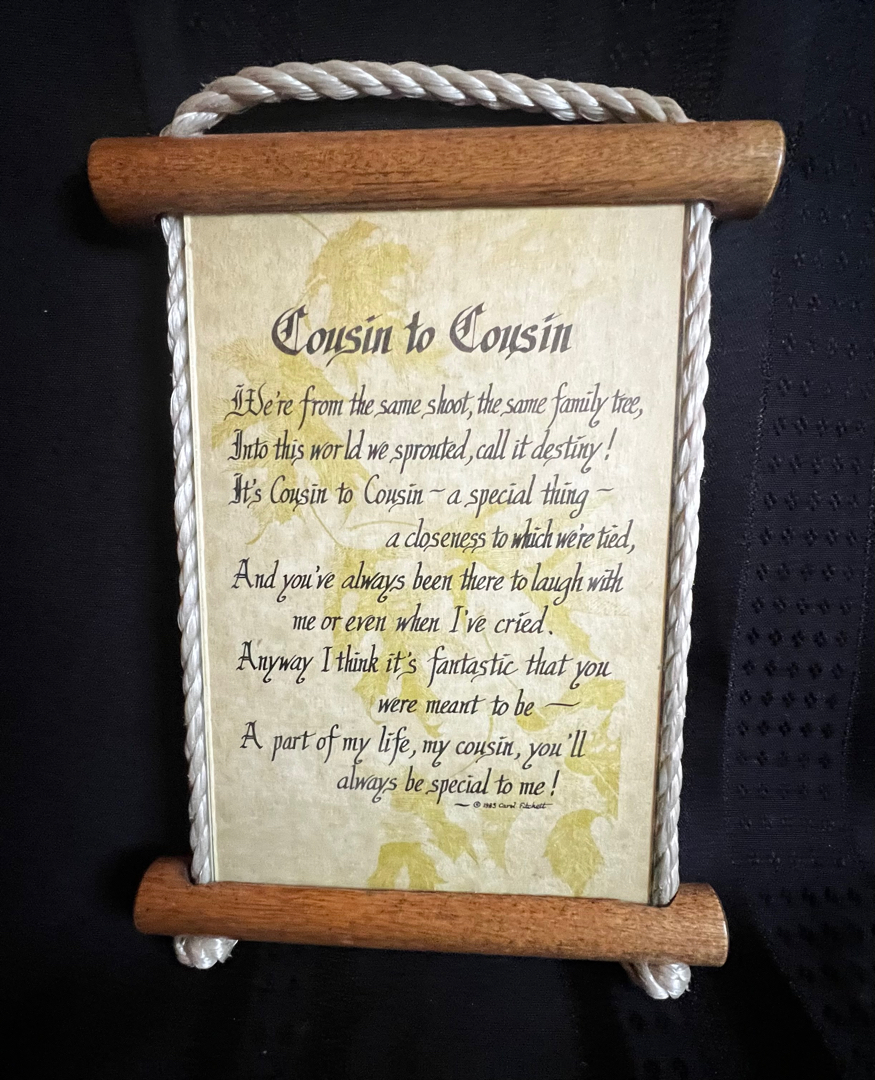 Cousin to Cousin
We're from the same shoot, the same family tree,
Into this world we sprouted, call it destiny!
It's Cousin to Cousin ~ a special thing ~
a closeness to which we're tied,
And you've always been there to laugh with
me or even when I've cried.
Anyway I think it's fantastic that you
were meant to be ~
A part of my life, my cousin, you'll
always be special to me!
~ © 1983 Carol